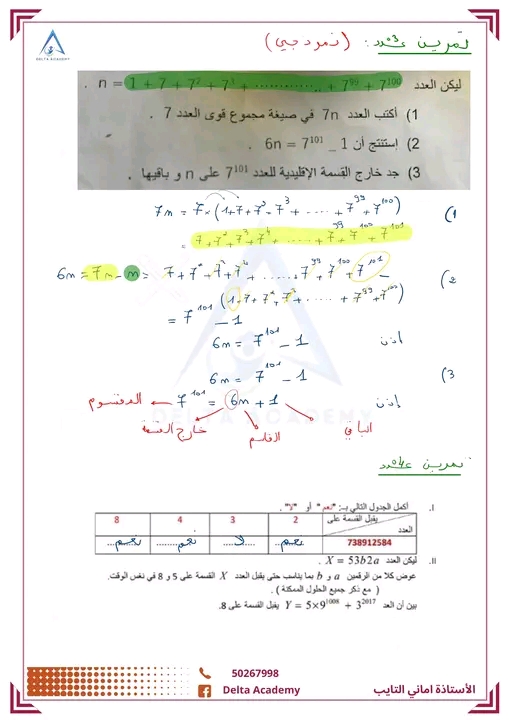 DELTA ACADEMY
تمرين عدد 3: (نموذجي)
ليكن العدد n = 1 + 7 + 7² + 7³ + ............. + 7⁹⁹ + 7¹⁰⁰ .
1) أكتب العدد 7n في صيغة مجموع قوى العدد 7 .
2) إستنتج أن 6n = 7¹⁰¹ _ 1 .
3) جد خارج القسمة الإقليدية للعدد 7¹⁰¹ على n و باقيها .
1) 7n = 7×(1+7+7²+7³+ ..... +7⁹⁹+7¹⁰⁰)
= 7+7²+7³+7⁴+ ..... +7⁹⁹+7¹⁰⁰+7¹⁰¹
2) 6n = 7n - n = 7+7²+7³+7⁴+ ..... +7⁹⁹+7¹⁰⁰+7¹⁰¹ -
(1+7+7²+7³+ ..... +7⁹⁹+7¹⁰⁰)
= 7¹⁰¹ - 1
إذن 6n = 7¹⁰¹ - 1
3) 6n = 7¹⁰¹ - 1
إذن 7¹⁰¹ = 6n + 1 ← المقسوم
الباقي القاسم خارج القسمة
DELTA ACADEMY
تمرين عدد 4:
I. أكمل الجدول التالي بـ: "نعم" أو "لا" .
يقبل القسمة على 2 3 4 8
العدد
738912584 نعم لا نعم نعم
II. ليكن العدد X = 53b2a .
عوض كلا من الرقمين a و b بما يناسب حتى يقبل العدد X القسمة على 5 و 8 في نفس الوقت.
( مع ذكر جميع الحلول الممكنة ) .
بين أن العد Y = 5×9¹⁰⁰⁸ + 3²⁰¹⁷ يقبل القسمة على 8.
50267998
Delta Academy
الأستاذة اماني التايب